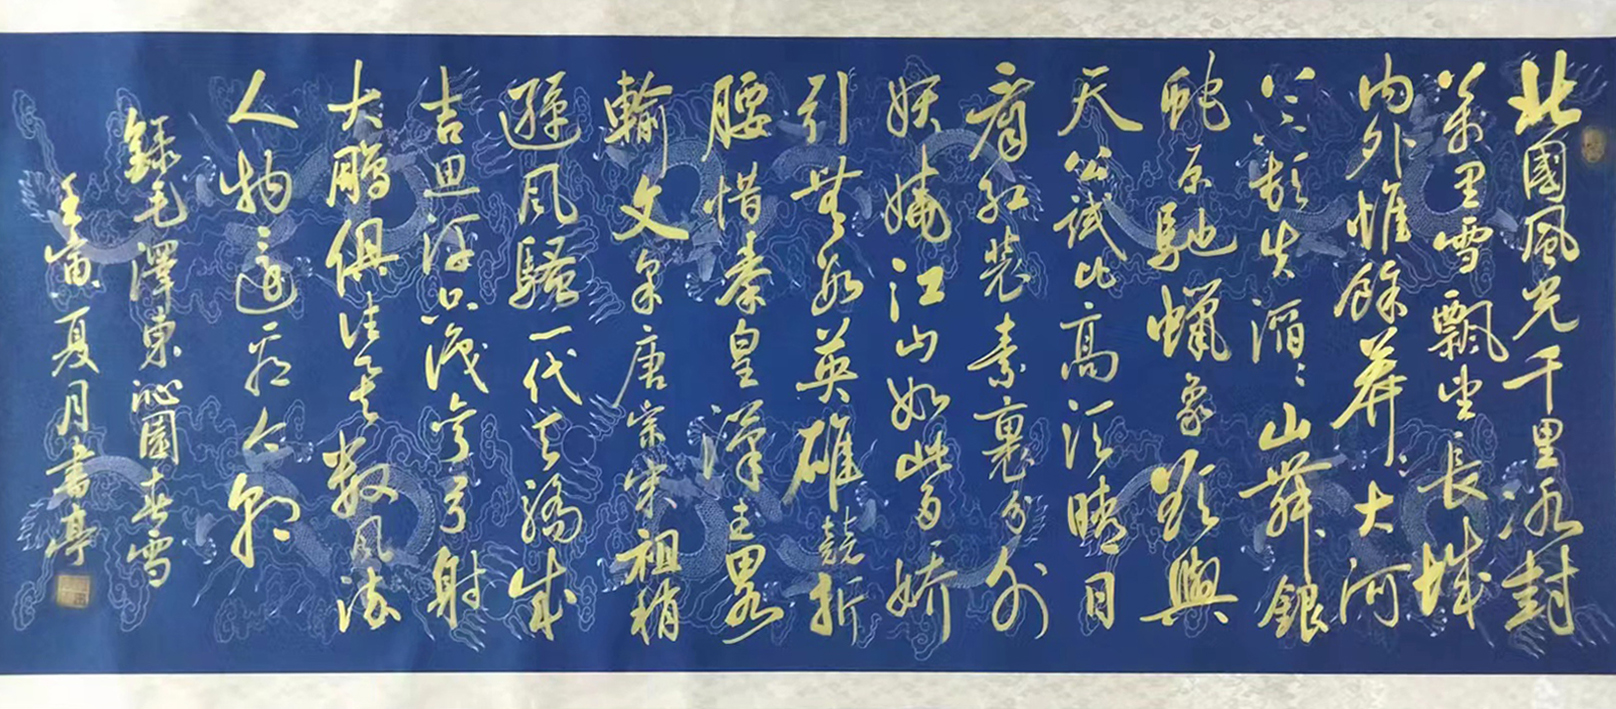 北國風光千里冰封
萬里雪飄望長城
内外惟餘莽〻大河
上下頓失滔〻山舞銀
蛇原馳蠟象欲與
天公試比高須晴日
看紅裝素裹分外
妖嬈江山如此多嬌
引無數英雄競折
腰惜秦皇漢武略
輸文采唐宗宋祖稍
遜風騷一代天驕成
吉思汗只識彎弓射
大鵬俱往矣數風流
人物還看今朝
錄毛澤東沁園春雪
壬寅夏月書亭